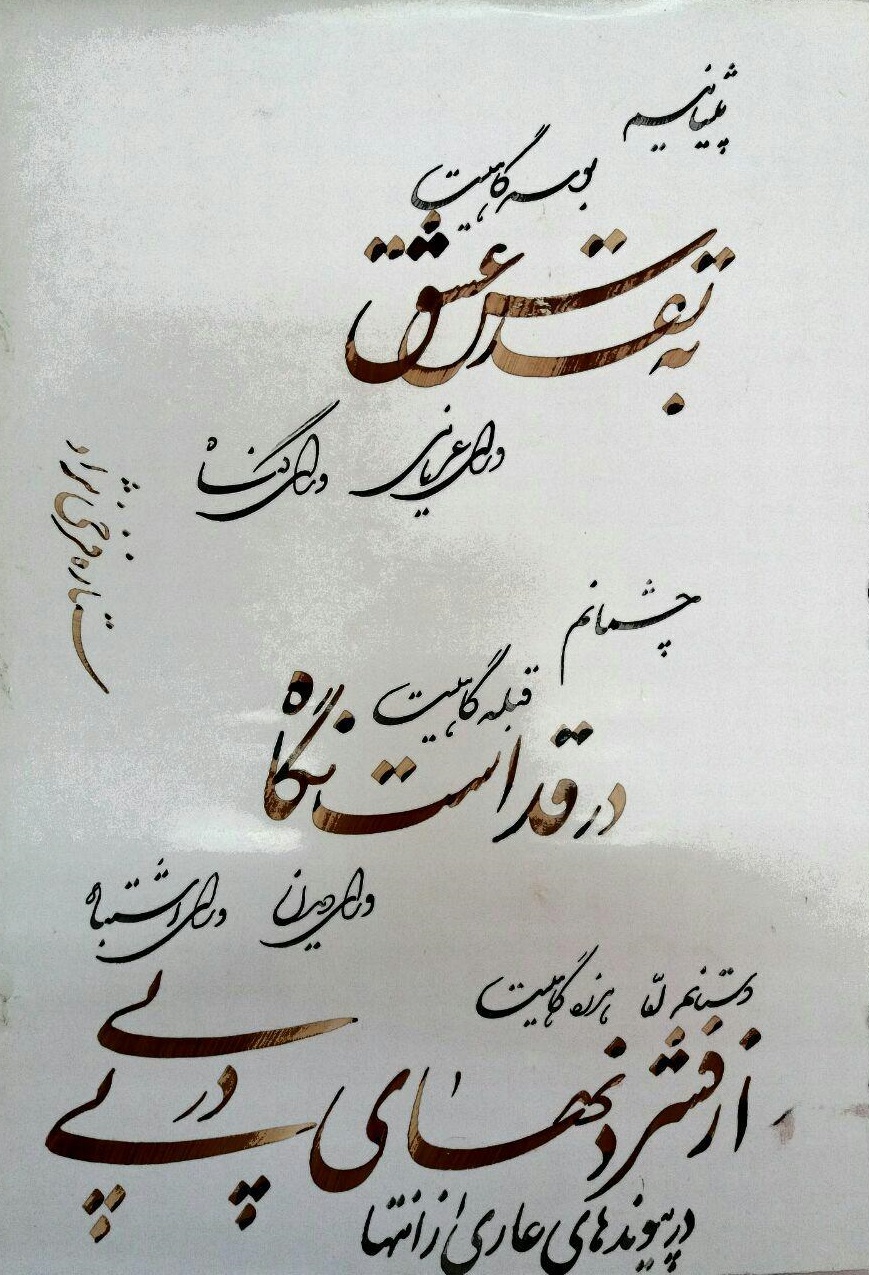 پیشانیم
بوسه گاهیست
به تقدس عشق
ورای عریانی ورای گناه
چشمانم
قبله گاهیست
در قداست نگاه
ورای دیدن ورای اشتباه
دستانم اما هرزه گاهیست
از فشردنهای پی در پی
در پیوندهای عاری از انتها
ستاره فرخی نژاد